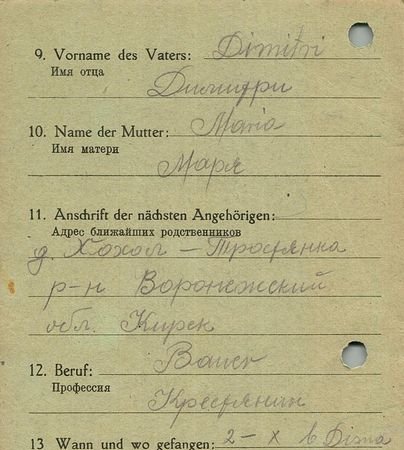 9. Vorname des Vaters: Dimitri
Имя отца
Димитри
10. Name der Mutter: Maria
Имя матери
Маря
11. Anschrift der nächsten Angehörigen:
Адрес ближайших родственников
д. Хохол – Тростянка
р-н Воронежский
обл. Курск
12. Beruf: Bauer
Профессия
Крестянин
13 Wann und wo gefangen: 2 – X b.